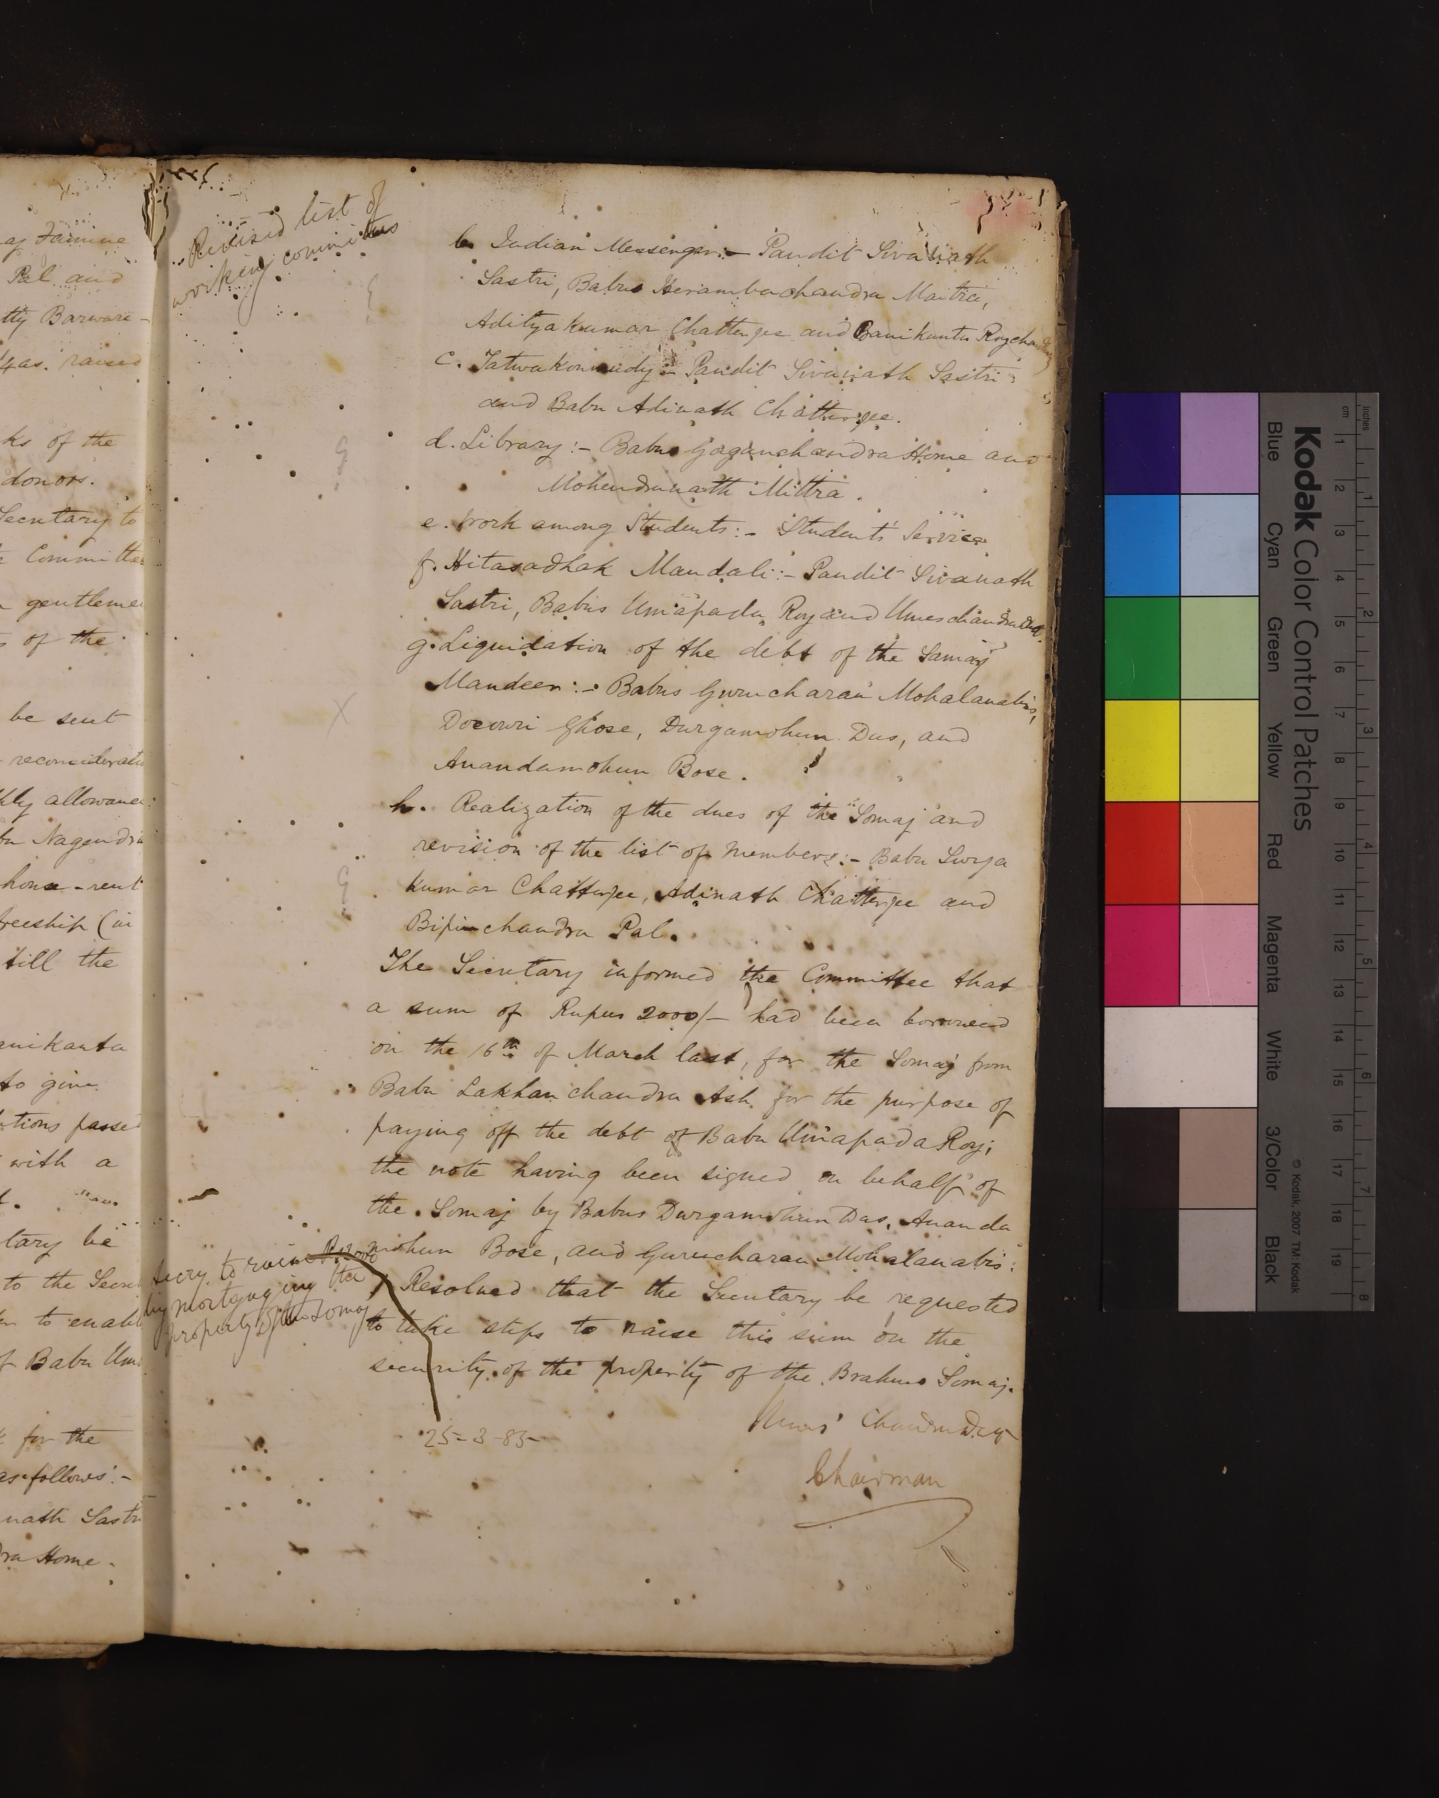 ag Famine
Pal and
tty Barware-
4as. raised
ks of the
donors.
Secretary to
Committee
gentlemen
of the
be sent
reconsideratio
hly allowance
bu Nagendra
house-rent
till the
anikanta
to give
utions passed
with a
tary be
to the Secre
to enabl
f Babu Uma
for the
as follows:-
nath Sastri
dra Home.
Revised list of
working committees
b. Indian Messenger:- Pandit Sivanath
Sastri, Babus Herambachandra Maitra,
Adityakumar Chatterjee and Banikanta Roychau
c. Tatwakoumudy:- Pandit Sivanath Sastri
and Babu Adinath Chatterjee.
d. Library:- Babus Gaganchandra Home and
Mohendranath Mittra.
e. Work among Students:- Students' Service
f. Hitasadhak Mandali:- Pandit Sivanath
Sastri, Babus Umapada Roy and Umeschandra Dutt.
g. Liquidation of the debt of the Samaj
Mandeer:- Babus Gurucharan Mohalanabis,
Docowri Ghose, Durgamohun Das, and
Anandamohun Bose.
h. Realization of the dues of the Somaj and
revision of the list of members:- Babu Surya
kumar Chatterjee, Adinath Chatterjee and
Bipinchandra Pal.
The Secretary informed the Committee that
a sum of Rupees 2000/- had been borrowed
on the 16th of March last, for the Somaj from
Babu Lakhan chandra Ash for the purpose of
paying off the debt of Babu Umapada Roy;
the note having been signed on behalf of
the Somaj by Babus Durgamohun Das, Ananda
mohun Bose, and Gurucharan Mohalanabis.
Resolved that the Secretary be requested
to take steps to raise this sum on the
security of the property of the Brahmo Somaj.
Secry. to raise Rs 2000
by mortgaging the
property of the Somaj
Umes Chandra Dutt
25-3-85-
Chairman
Kodak Color Control Patches
© Kodak, 2007 TM: Kodak
Blue Cyan Green Yellow Red Magenta White 3/Color Black
inches 1 2 3 4 5 6 7 8
cm 1 2 3 4 5 6 7 8 9 10 11 12 13 14 15 16 17 18 19